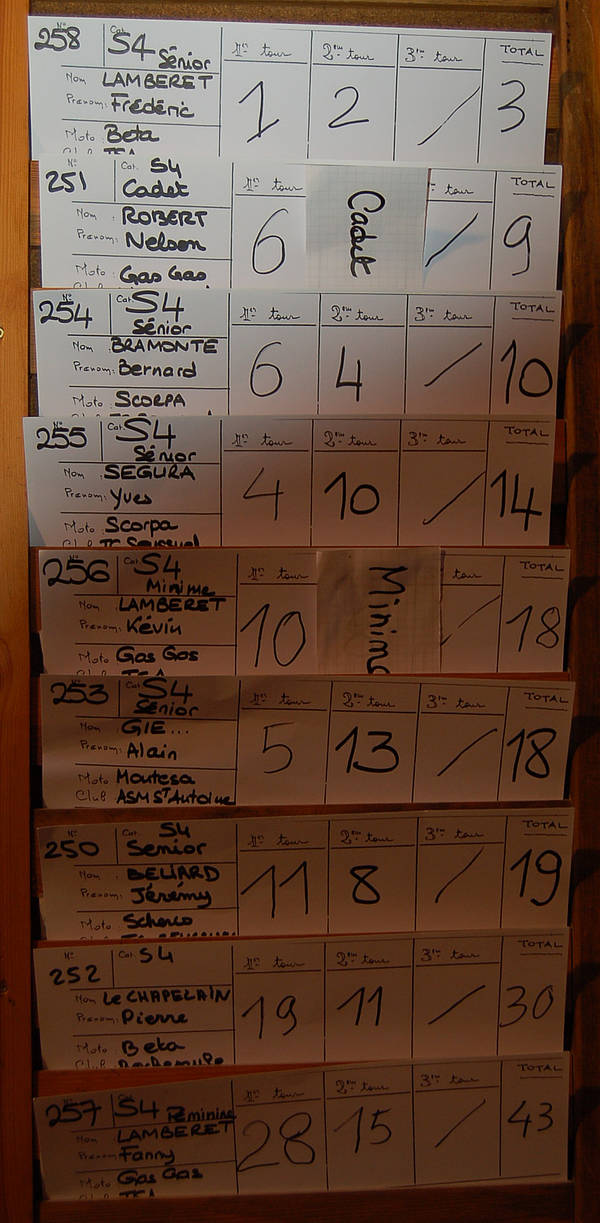 N° 258 Cat. S4 Sénior 1er tour 2ème tour 3ème tour TOTAL
Nom LAMBERET
Prénom: Frédéric 1 2 / 3
Moto Beta
N° 251 Cat. S4 Cadet 1er tour tour TOTAL
Nom : ROBERT
Prénom: Nelson 6 Cadet / 9
Moto : Gas Gas
N° 254 Cat. S4 Sénior 1er tour 2ème tour 3ème tour TOTAL
Nom : BRAMONTE
Prénom: Bernard 6 4 / 10
Moto : SCORPA
N° 255 Cat. S4 Sénior 1er tour 2ème tour 3ème tour TOTAL
Nom : SEGURA
Prénom: Yves 4 10 / 14
Moto : Scorpa
Club
N° 256 Cat. S4 Minime 1er tour tour TOTAL
Nom LAMBERET
Prénom: Kévin 10 Minime / 18
Moto Gas Gas
N° 253 Cat. S4 Sénior 1er tour 2ème tour 3ème tour TOTAL
Nom : GIE...
Prénom: Alain 5 13 / 18
Moto Montesa
Club ASM St Antoine
N° 250 Cat. S4 Senior 1er tour 2ème tour 3ème tour TOTAL
Nom : BELIARD
Prénom: Jérémy 11 8 / 19
Moto Scherco
N° 252 Cat. S4 1er tour 2ème tour 3ème tour TOTAL
Nom Le CHAPELAIN
Prénom: Pierre 19 11 / 30
Moto : Beta
Club
N° 257 Cat. S4 Féminine 1er tour 2ème tour 3ème tour TOTAL
Nom LAMBERET
Prénom: Fanny 28 15 / 43
Moto : Gas Gas